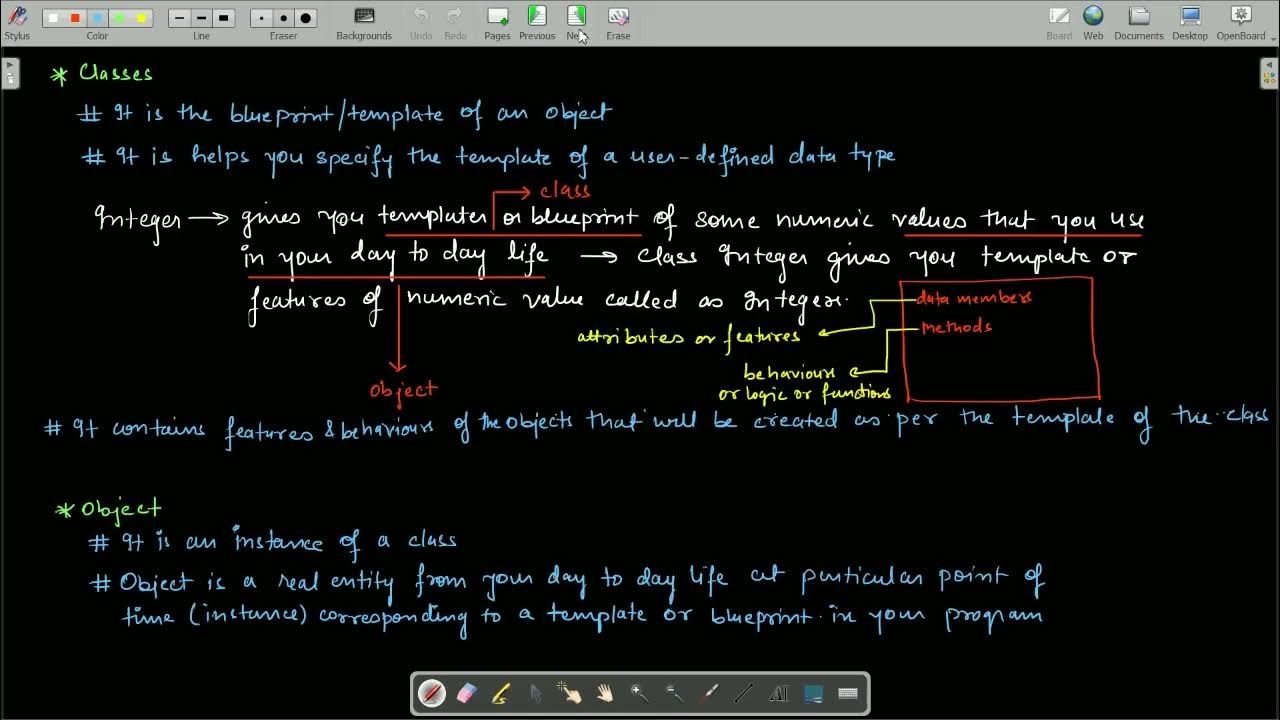 Stylus Color Line Eraser Backgrounds Undo Redo Pages Previous Erase Board Web Documents Desktop OpenBoard
* Classes
# It is the blueprint/template of an object
# It is helps you specify the template of a user-defined data type
class
Integer → gives you templater or blueprint of some numeric values that you use
in your day to day life → class Integer gives you template or
features of numeric value called as Integer.
data members
attributes or features
methods
behaviours
or logic or functions
object
# It contains features & behaviours of the objects that will be created as per the template of the class
* Object
# It is an instance of a class
# Object is a real entity from your day to day life at particular point of
time (instance) corresponding to a template or blueprint in your program